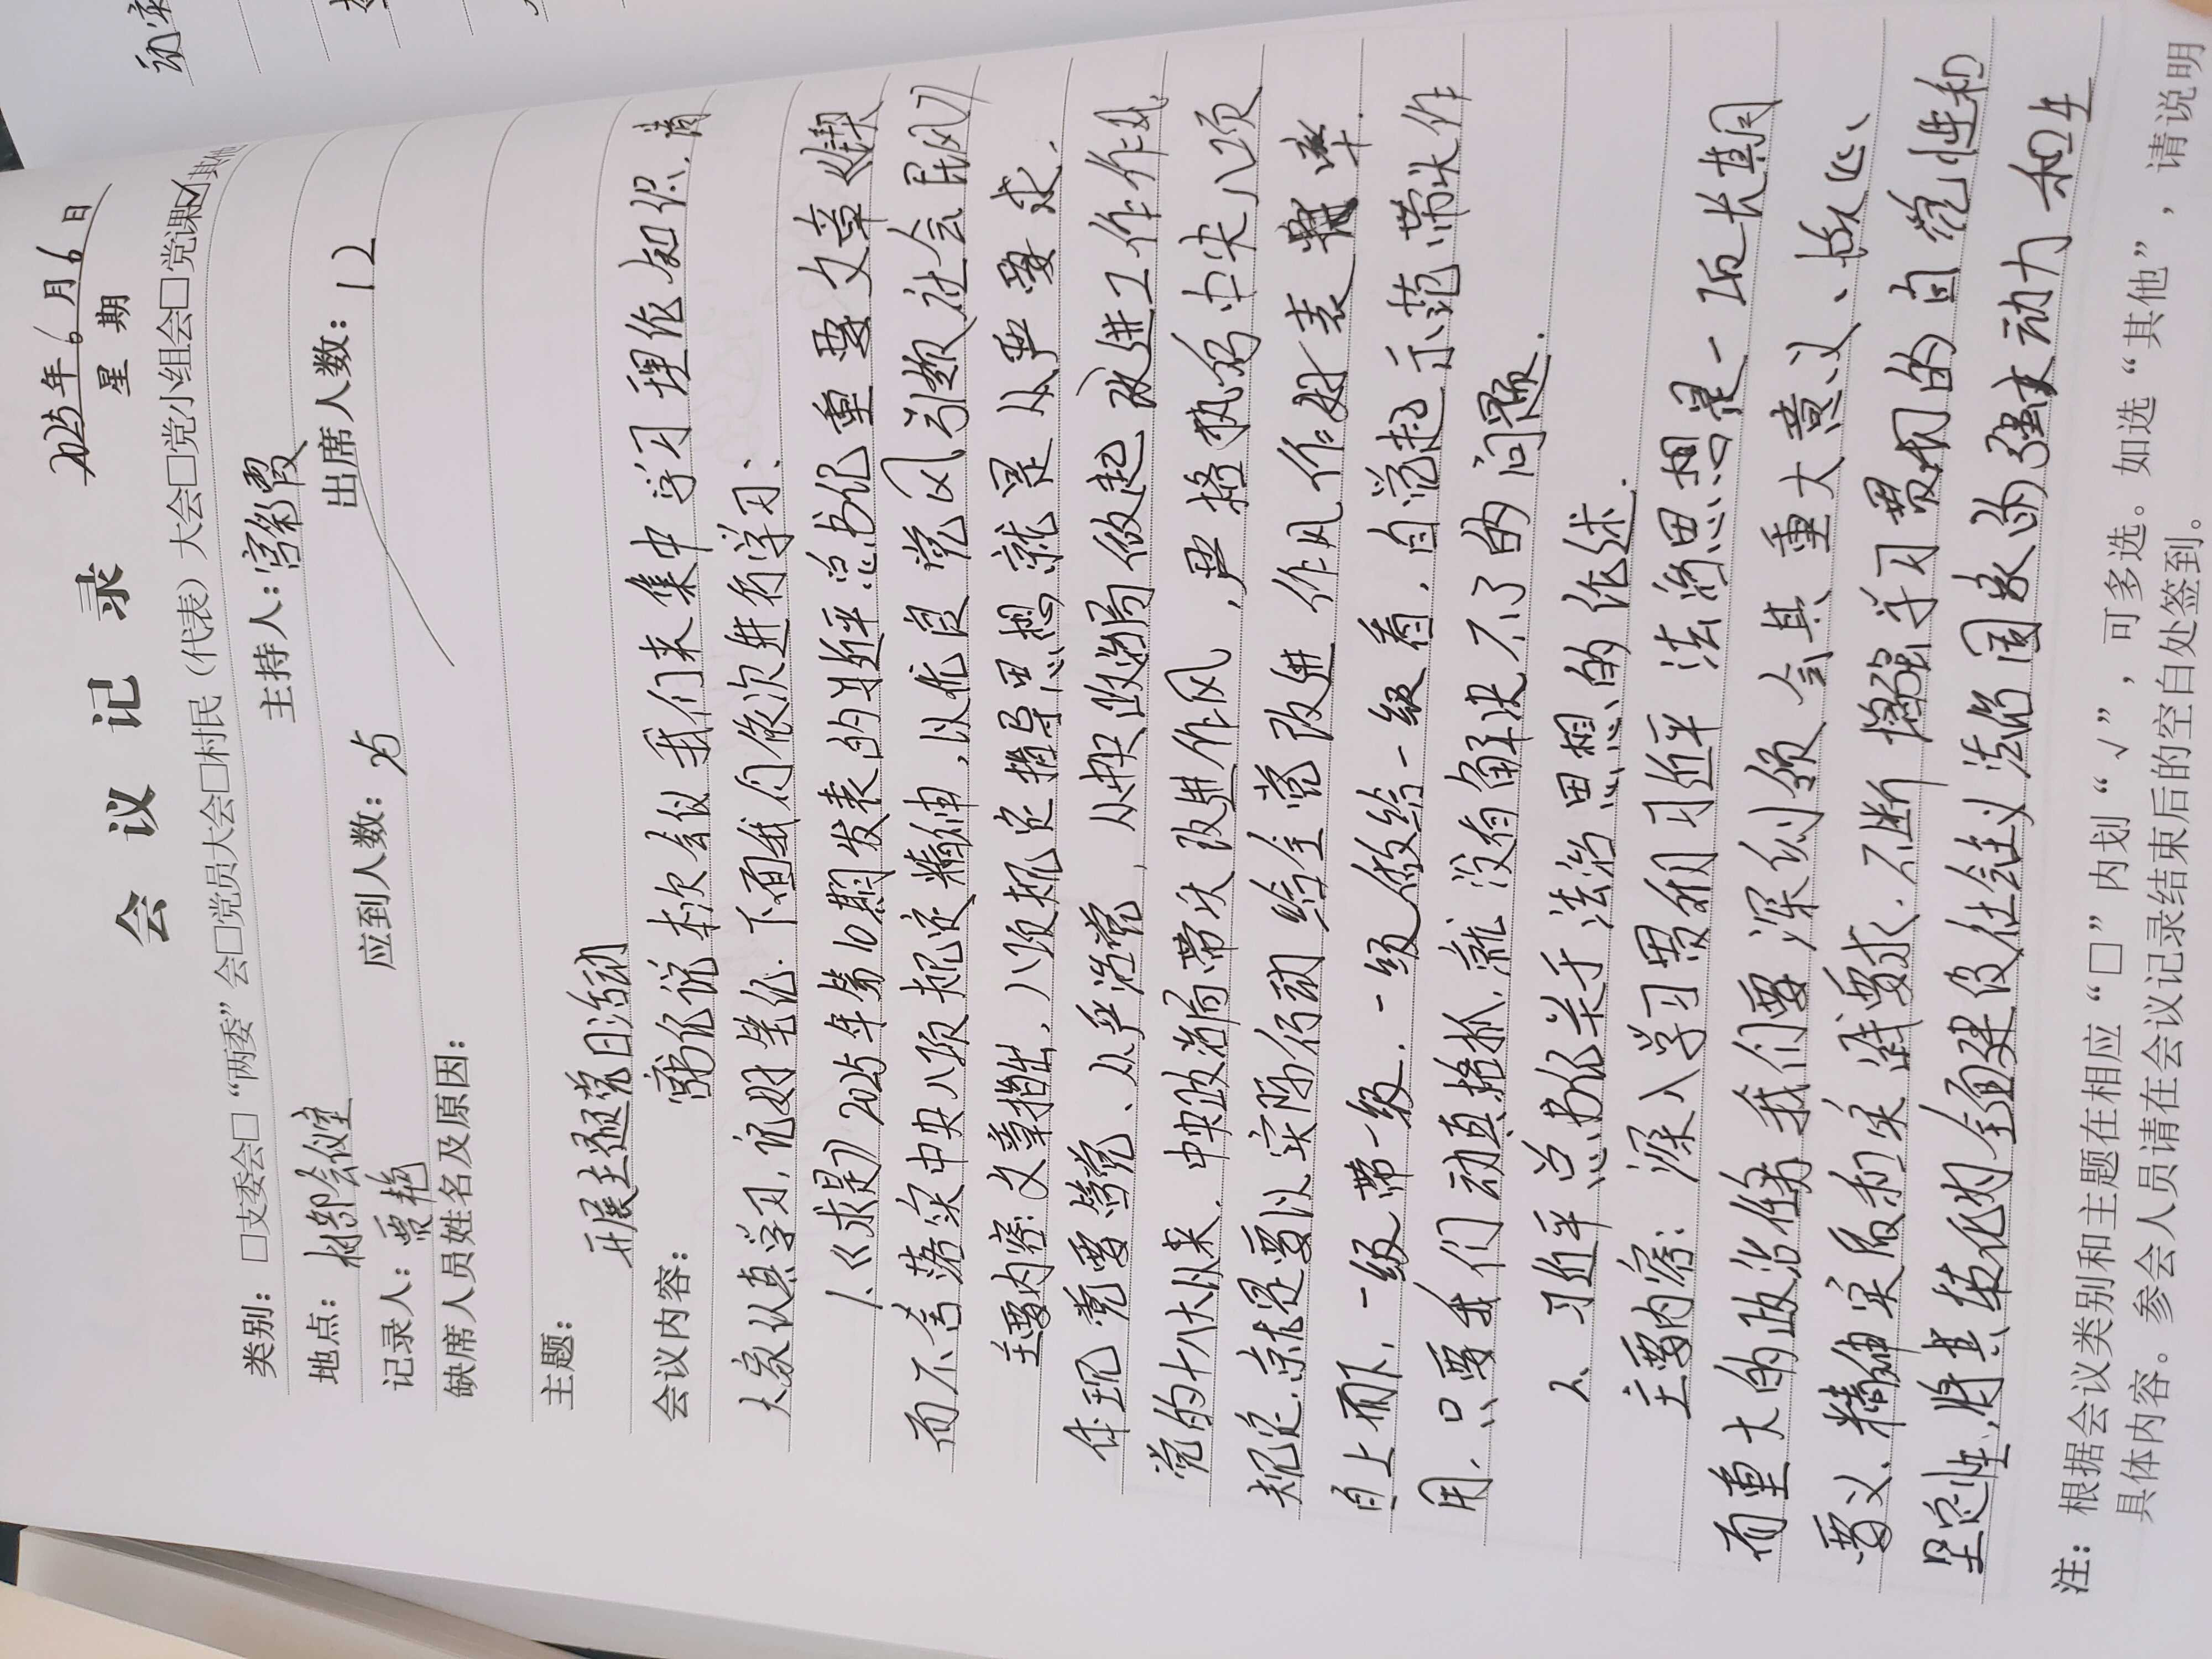 会 议 记 录
2025年6月6日
星 期
类别：□支委会□“两委”会□党员大会□村民（代表）大会□党小组会□党课☑其他
地点：村部会议室
主持人：宫彩霞
记录人：贾艳
应到人数：25
出席人数：12
缺席人员姓名及原因：
主题：开展主题党日活动
会议内容：宫书记说本次会议我们来集中学习理论知识，请
大家认真学习，记好笔记．下面我们依次进行学习、
1、《求是》2025年第10期发表的习近平总书记重要文章《锲
而不舍落实中央八项规定精神，以优良党风引领社会民风》
主要内容：文章指出，八项规定指导思想就是从严要求．
体现党要管党、从严治党，从中央政治局做起改进工作作风，
党的十八大以来．中央政治局带头改进作风，严格执行中央八项
规定，就是要以实际行动给全党改进作风作好表率．
自上而下，一级带一级．一级做给一级看，自觉起示范带头作
用，只要我们动真格抓，就没有解决不了的问题．
2、习近平总书记关于法治思想的论述．
主要内容：深入学习贯彻习近平法治思想是一项长期
而重大的政治任务我们要深刻领会其重大意义、核心
要义、精神实质和实践要求．不断增强学习贯彻的自觉性和
坚定性，将其转化为全面建设社会主义法治国家的强大动力和生
注：根据会议类别和主题在相应“□”内划“√”，可多选。如选“其他”，请说明
具体内容。参会人员请在会议记录结束后的空白处签到。